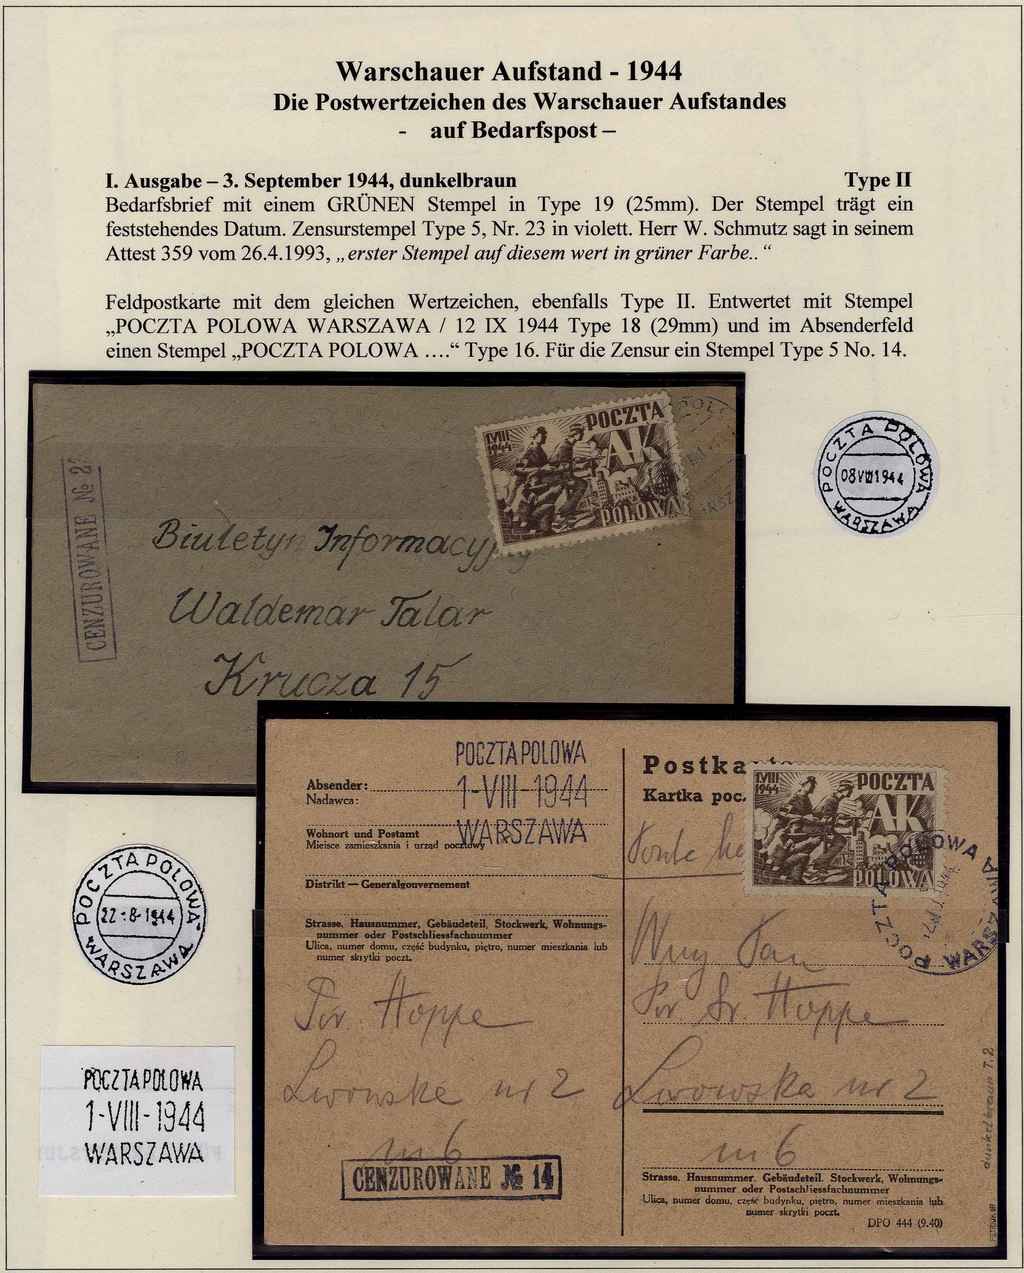 Warschauer Aufstand - 1944
Die Postwertzeichen des Warschauer Aufstandes
- auf Bedarfspost –
I. Ausgabe – 3. September 1944, dunkelbraun Type II
Bedarfsbrief mit einem GRÜNEN Stempel in Type 19 (25mm). Der Stempel trägt ein
feststehendes Datum. Zensurstempel Type 5, Nr. 23 in violett. Herr W. Schmutz sagt in seinem
Attest 359 vom 26.4.1993, „erster Stempel auf diesem wert in grüner Farbe.. “
Feldpostkarte mit dem gleichen Wertzeichen, ebenfalls Type II. Entwertet mit Stempel
„POCZTA POLOWA WARSZAWA / 12 IX 1944 Type 18 (29mm) und im Absenderfeld
einen Stempel „POCZTA POLOWA ….“ Type 16. Für die Zensur ein Stempel Type 5 No. 14.
CENZUROWANE № 2
1.VIII
1944
POCZTA
AK
POLOWA
Biuletyn Informacyj
Waldemar Talar
Krucza 15
POCZTA POLOWA
08 VIII 1944
WARSZAWA
POCZTA POLOWA
1-VIII-1944
WARSZAWA
Absender:
Nadawca:
Wohnort und Postamt
Miejsce zamieszkania i urząd pocztowy
Distrikt — Generalgouvernement
Strasse, Hausnummer, Gebäudeteil, Stockwerk, Wohnungs-
nummer oder Postschliessfachnummer
Ulica, numer domu, część budynku, piętro, numer mieszkania lub
numer skrytki poczt.
Hoppe
Lwowska nr 2
m 6
CENZUROWANE № 14
Postka
Kartka poc
1.VIII
1944
POCZTA
AK
POLOWA
POCZTA POLOWA
WARSZAWA
Wny Pan
Hoppe
Lwowska nr 2
m 6
Strasse, Hausnummer, Gebäudeteil, Stockwerk, Wohnungs-
nummer oder Postschliessfachnummer
Ulica, numer domu, część budynku, piętro, numer mieszkania lub
numer skrytki poczt.
DPO 444 (9.40)
dunkelbraun T.2
POCZTA POLOWA
22-8-1944
WARSZAWA
POCZTA POLOWA
1-VIII-1944
WARSZAWA